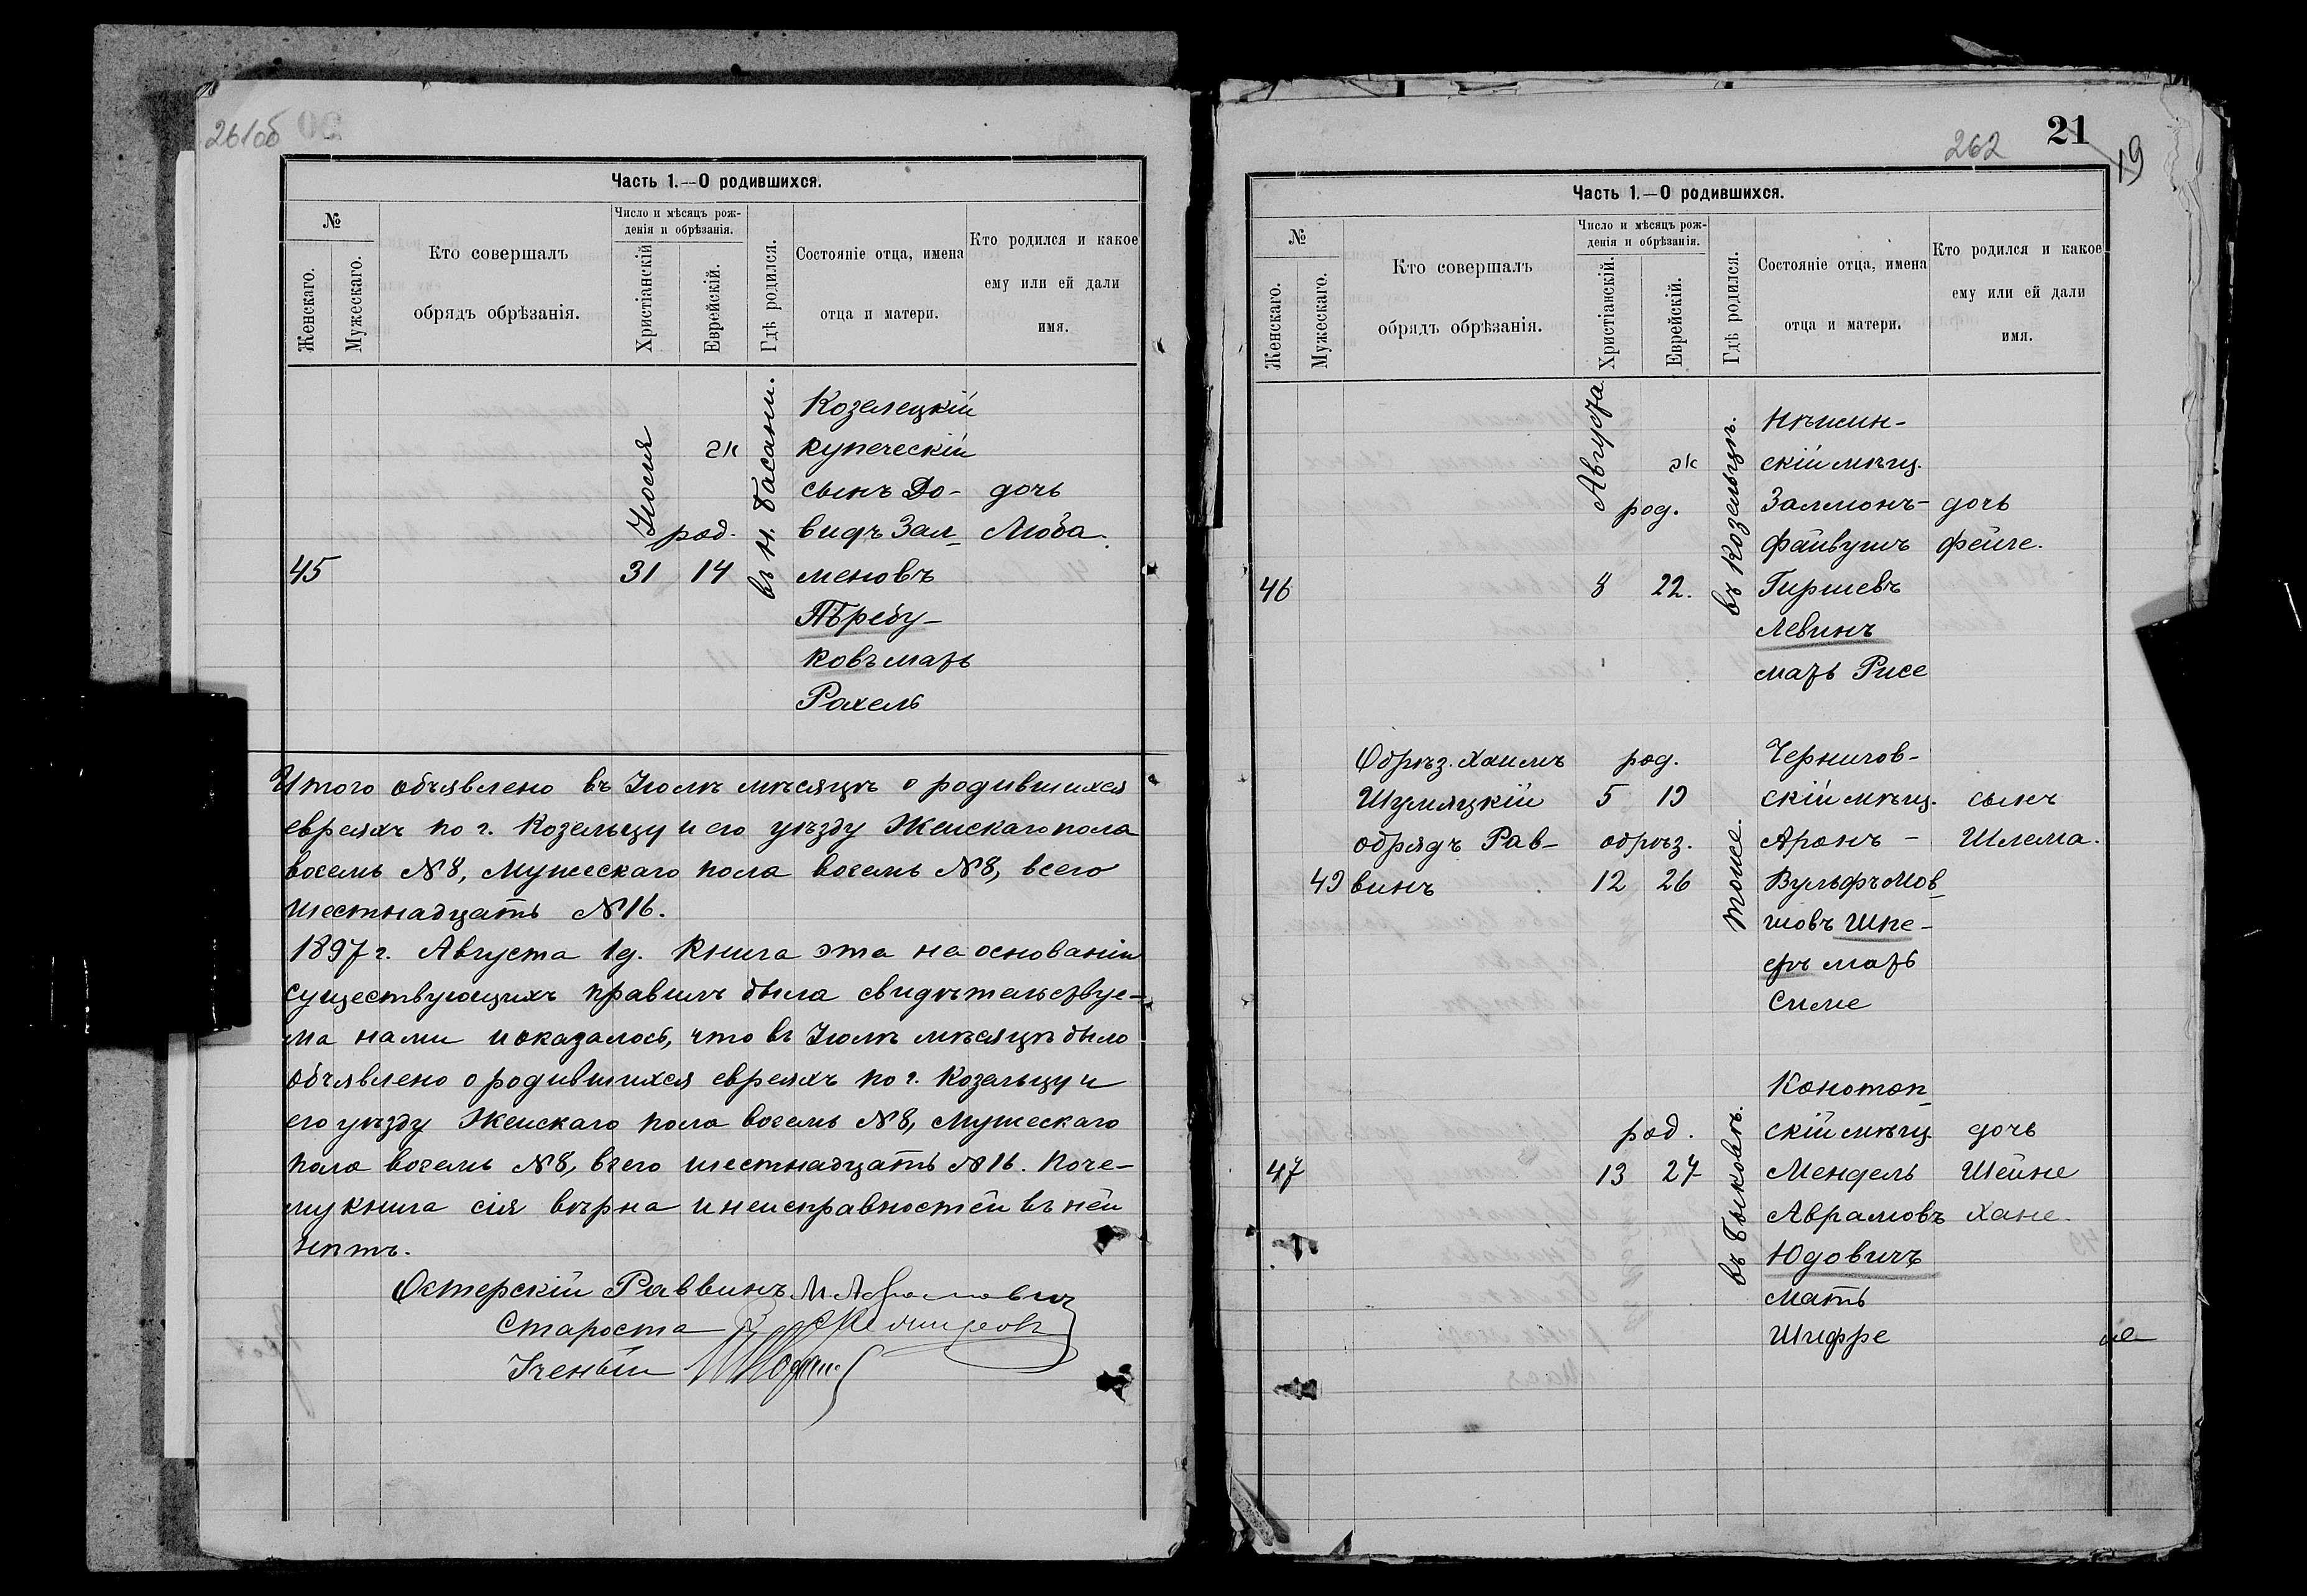 261об
Часть 1.—О родившихся.
№
Женскаго.
Мужескаго.
Кто совершалъ
обрядъ обрѣзанія.
Число и мѣсяцъ рож-
денія и обрѣзанія.
Христіанскій
Еврейскій.
Гдѣ родился.
Состояніе отца, имена
отца и матери.
Кто родился и какое
ему или ей дали
имя.
45
Іюля
род.
31 14
въ н. Басани.
Козелецкій
купеческій
сынъ До-
видъ Зал-
меновъ
Требу-
ковъ мать
Рахель
дочь
Люба.
Итого объявлено въ Іюлѣ мѣсяцѣ о родившихся
евреяхъ по г. Козельцу и его уѣзду Женскаго пола
восемь №8, Мужескаго пола восемь №8, всего
шестнадцать №16.
1897 г. Августа 1 д. Книга эта на основаніи
существующихъ правилъ была свидѣтельствуе-
ма нами и оказалось, что въ Іюлѣ мѣсяцѣ было
объявлено о родившихся евреяхъ по г. Козельцу и
его уѣзду Женскаго пола восемь №8, Мужескаго
пола восемь №8, всего шестнадцать №16. Поче-
му книга сія вѣрна и неисправностей въ ней
нѣтъ.
Остерскій Раввинъ М. Абрамович
Староста
Ученый
262
21
19
Часть 1.—О родившихся.
№
Женскаго.
Мужескаго.
Кто совершалъ
обрядъ обрѣзанія.
Число и мѣсяцъ рож-
денія и обрѣзанія.
Христіанскій.
Еврейскій.
Гдѣ родился.
Состояніе отца, имена
отца и матери.
Кто родился и какое
ему или ей дали
имя.
46
Августа
род.
8 22.
въ Козельцѣ.
Нѣжин-
скій мѣщ.
Залмонъ-
Файвушъ
Гиршевъ
Левинъ
мать Рисе
дочь
Фейге.
49
Обрѣз. Хаимъ
Шумяцкій
обрядъ Рав-
винъ
род.
5 19
обрѣз.
12 26
тоже.
Чернигов-
скій мѣщ.
Аронъ -
Вульфъ Мов-
шовъ Шпе-
еръ мать
Симе
сынъ
Шлема.
47
род.
13 27
въ Быковѣ.
Конотоп-
скій мѣщ.
Мендель
Аврамовъ
Юдовичъ
мать
Шифре
дочь
Шейне
Хане.